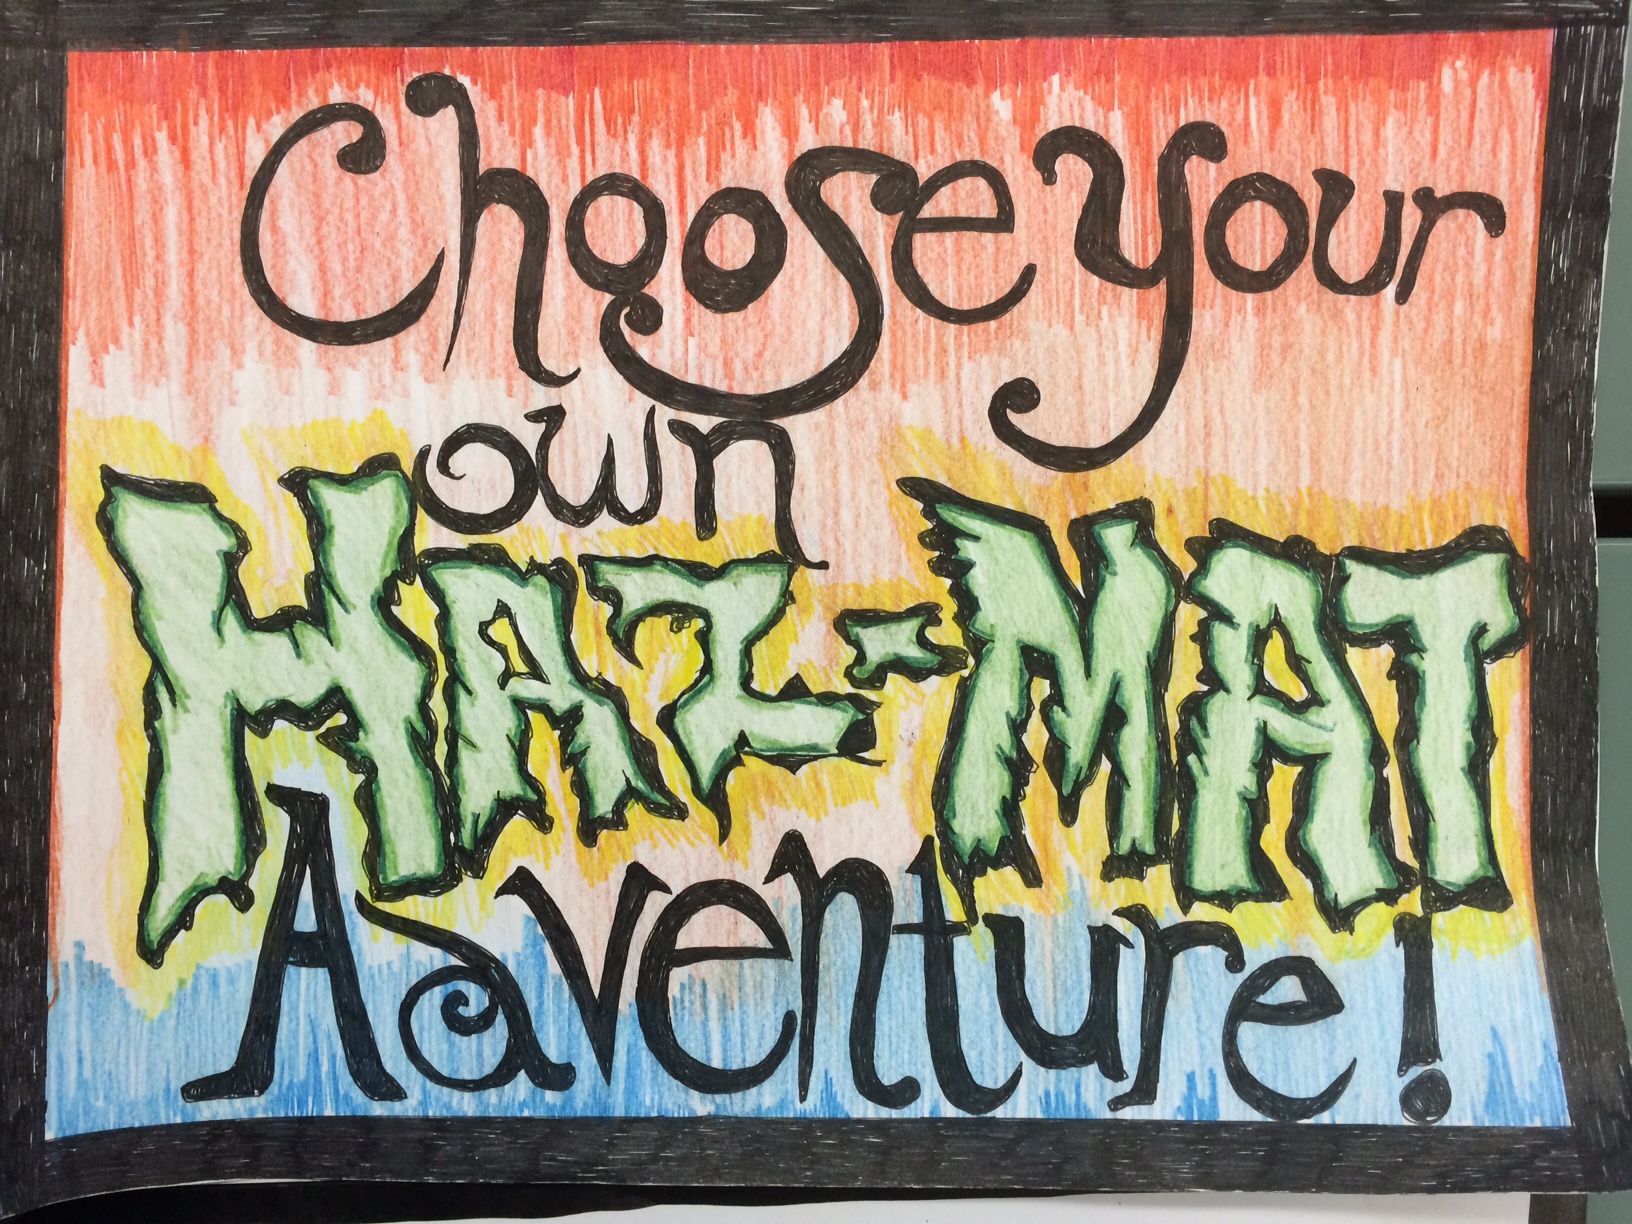 Choose Your
own
HAZ-MAT
Adventure!